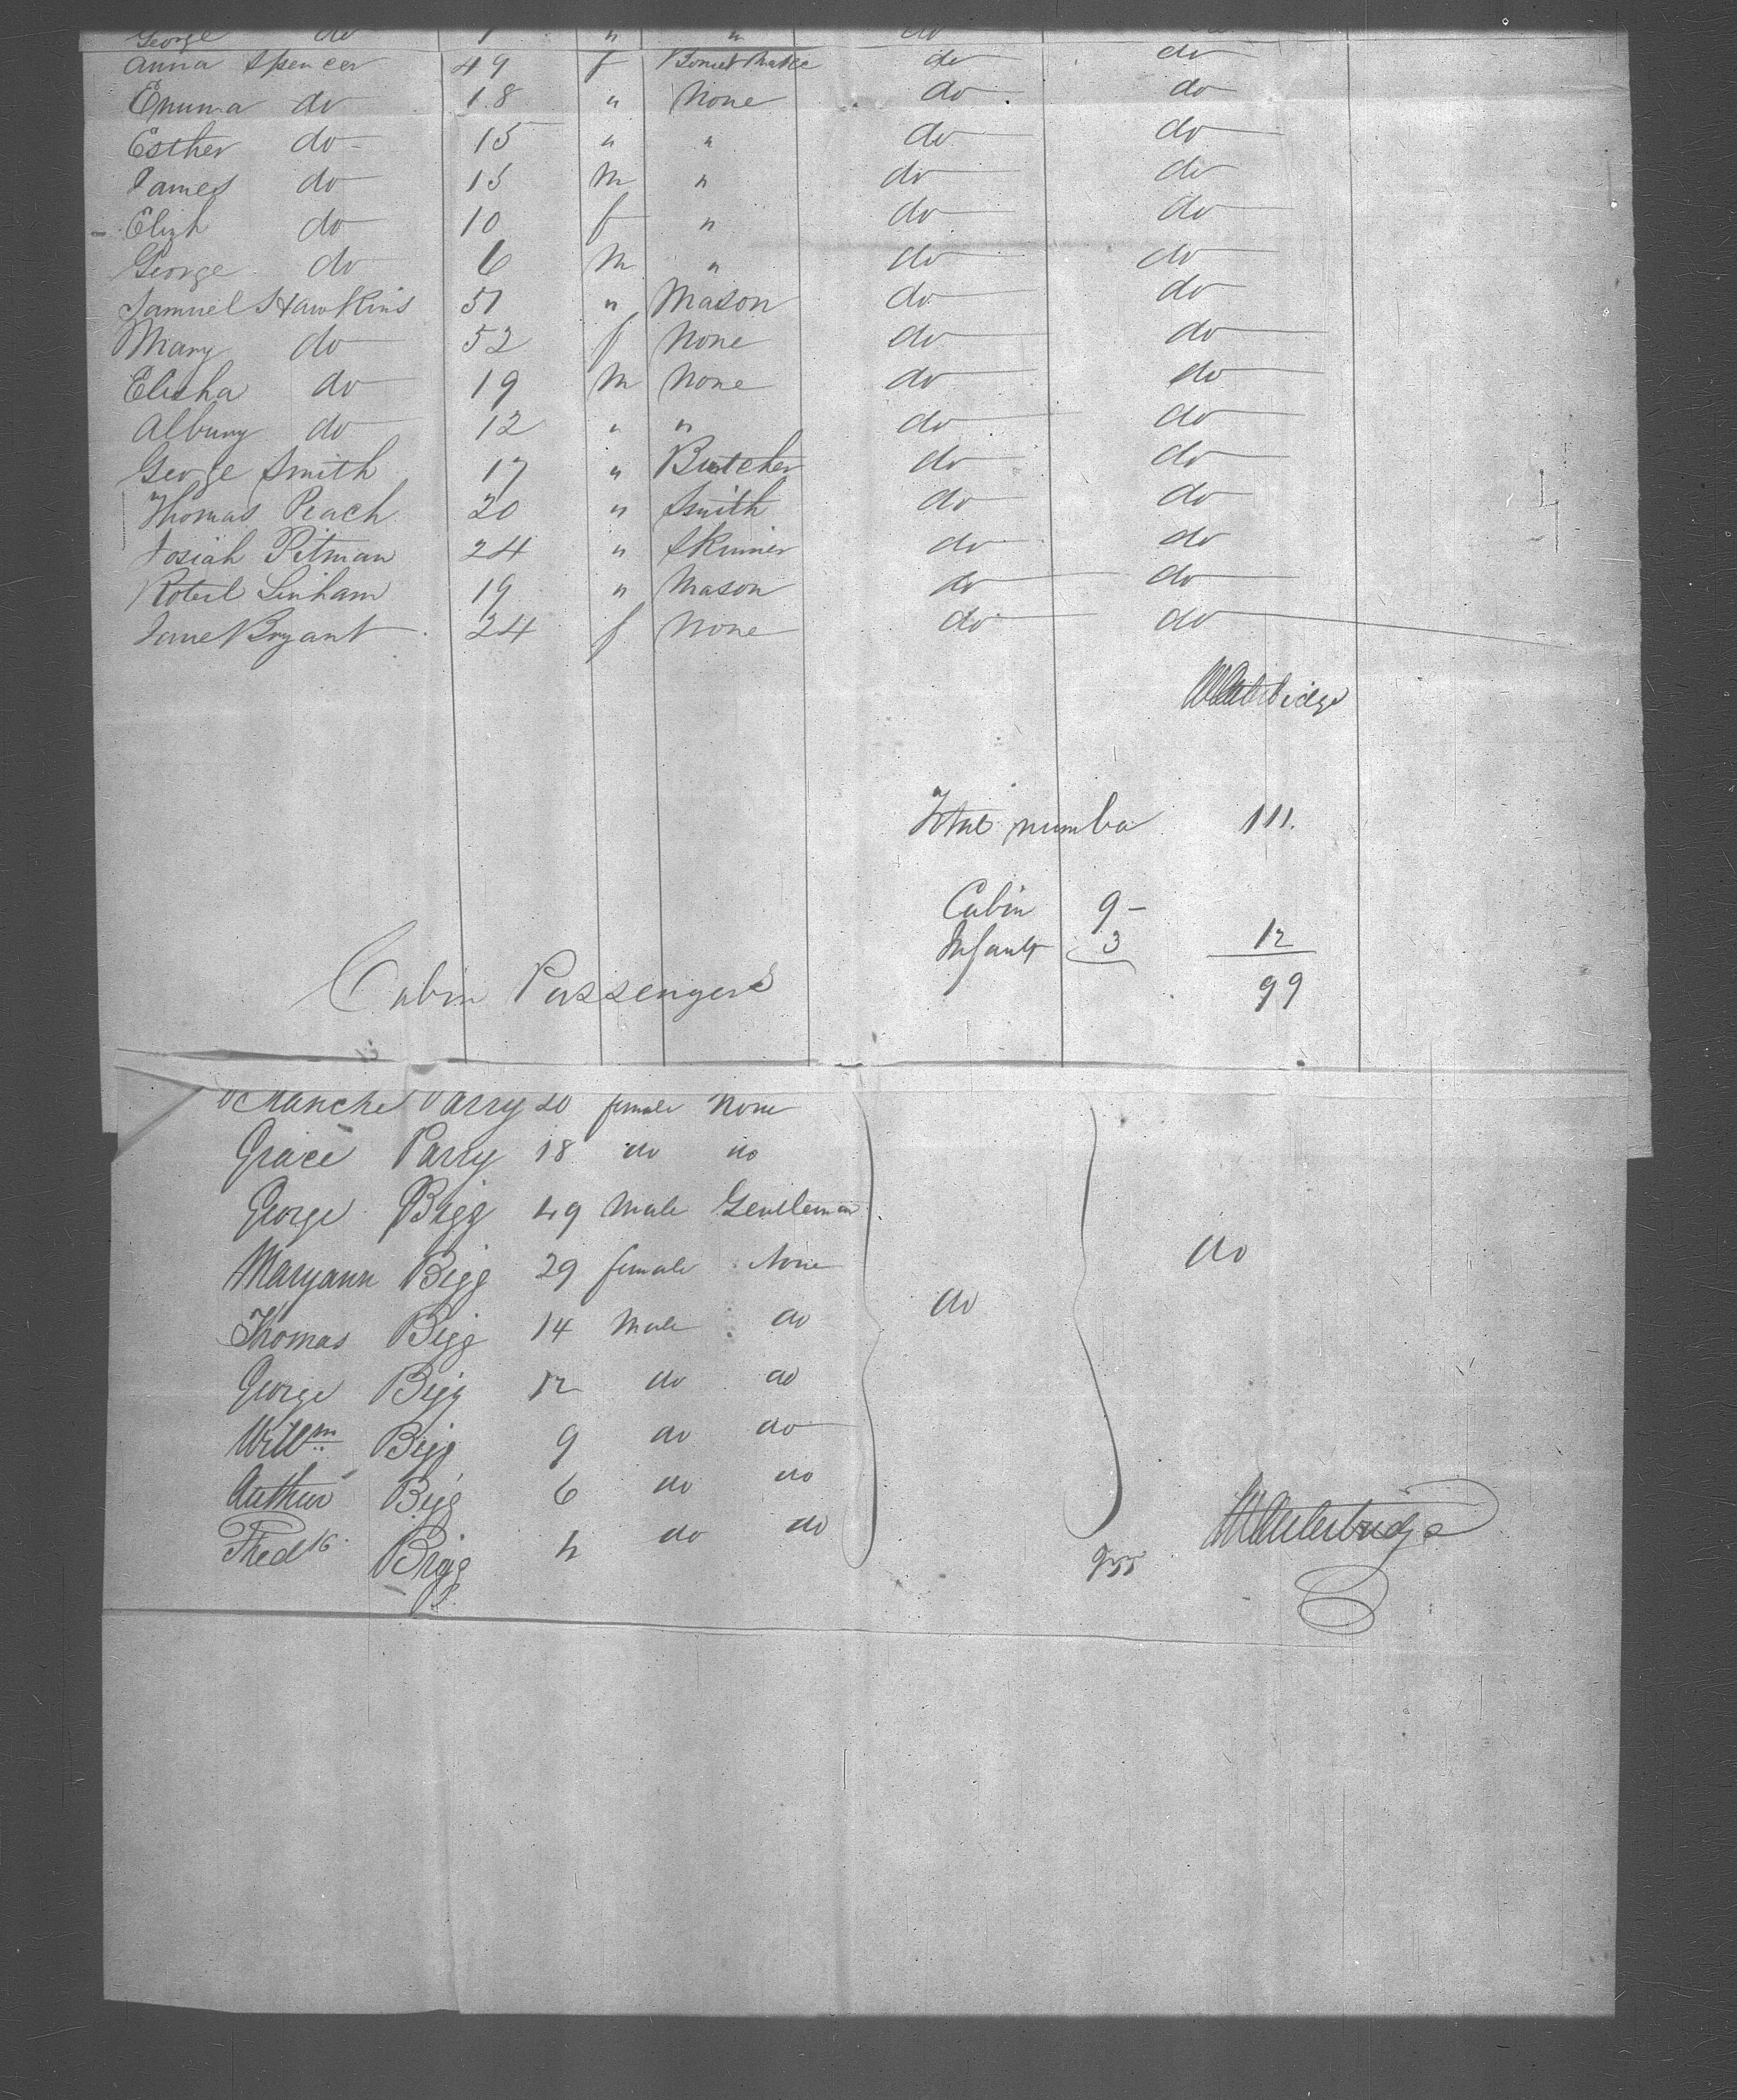 George do 1 " " do
Anna Spencer 49 f Bonnet Maker do do
Emma do 18 " None do do
Esther do 15 " " do do
James do 13 M " do do
Elizh do 10 f " do do
George do 6 M " do do
Samuel Hawkins 51 " Mason do do
Mary do 52 f None do do
Elisha do 19 M None do do
Albury do 12 " " do do
George Smith 17 " Butcher do do
Thomas Peach 20 " Smith do do
Josiah Pitman 24 " Skinner do do
Robert Linham 19 " Mason do do
Jane Bryant 24 f None do do
W Outerbridge
Total number 111.
Cabin 9 -
Infants 3 12
99
Cabin Passengers
Blanche Parry 20 female None
Grace Parry 18 do do
George Bigg 49 Male Gentleman
Maryann Bigg 29 female None do
Thomas Bigg 14 Male do do
George Bigg 12 do do
Willm Bigg 9 do do
Arthur Bigg 6 do do
Fredk Bigg 4 do do
W Outerbridge
955